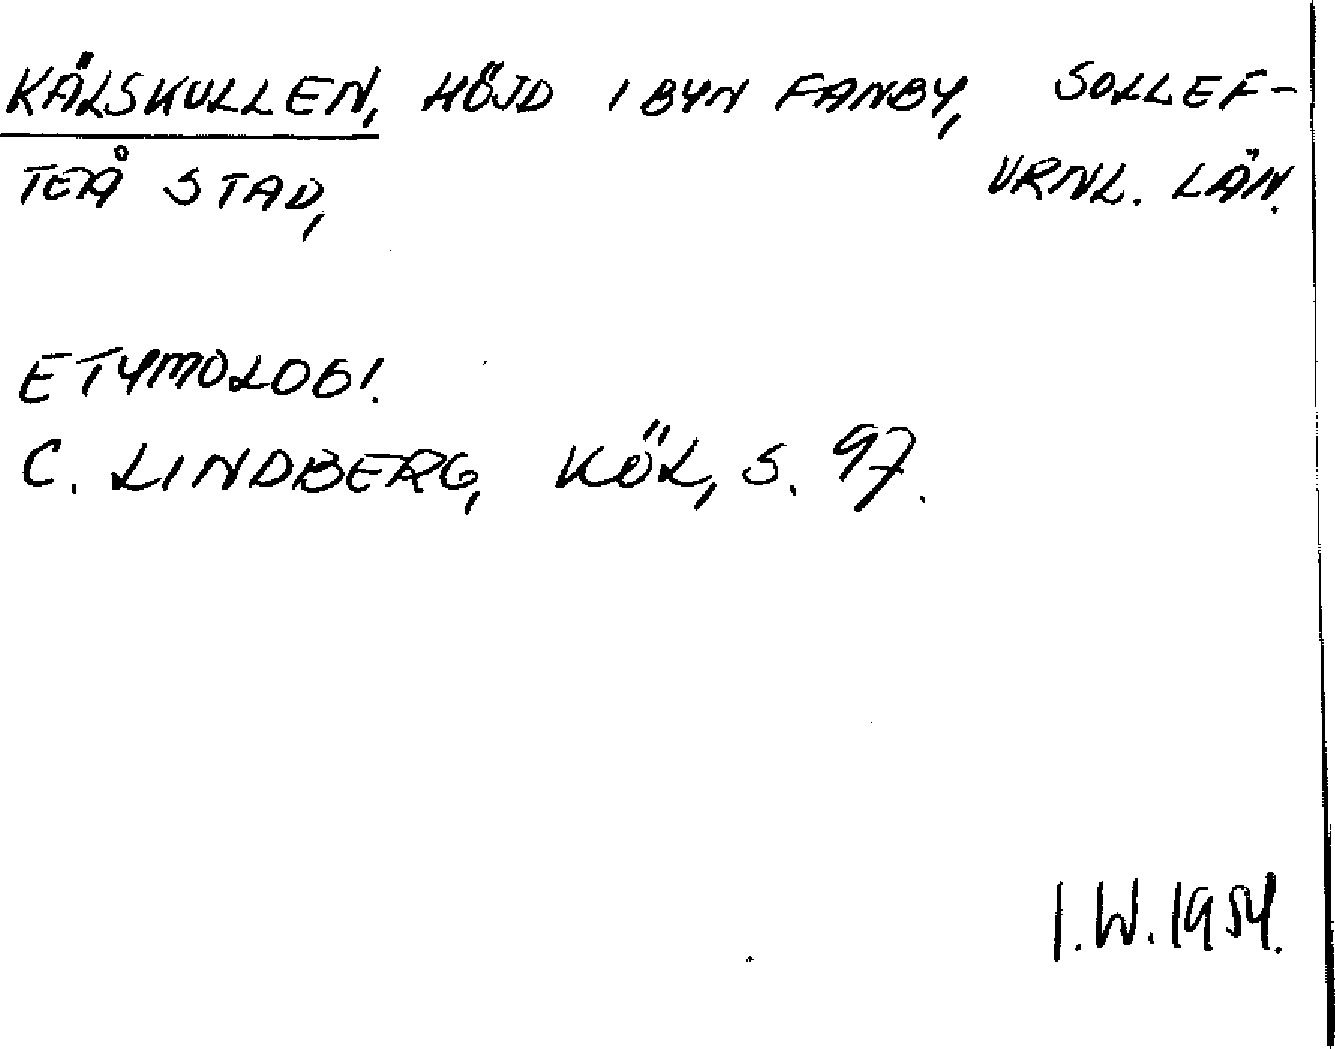 KÄLSKULLEN, HÖJD I BYN FANBY, SOLLEF-
TEÅ STAD, VRNL. LÄN.
ETYMOLOGI.
C. LINDBERG, KÖL, S. 97.
I.W. 1954.